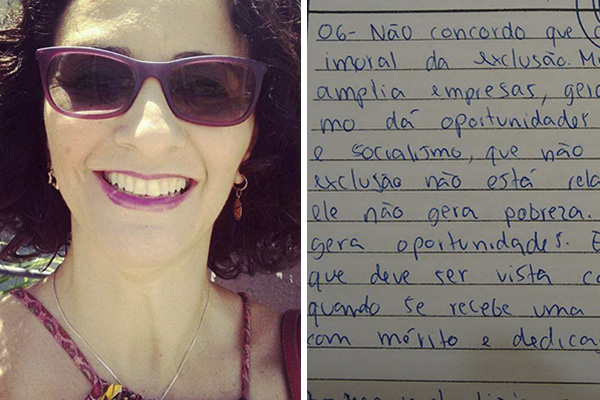 06- Não concordo que
imoral da exclusão.
amplia empresas,
mo dá oportunidades
e socialismo, que não
exclusão não está
ele não gera pobreza.
gera oportunidades.
que deve ser vista
quando se recebe uma
com mérito e